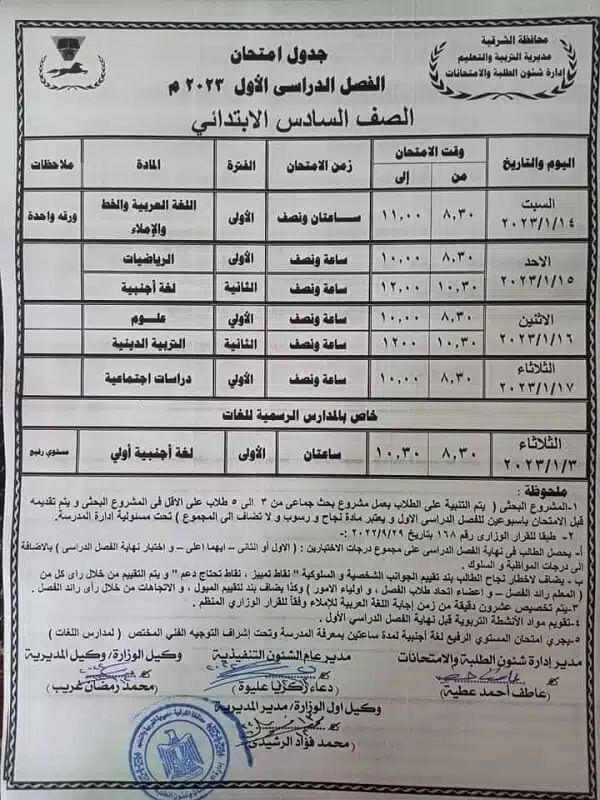 محافظة الشرقية
مديرية التربية والتعليم
إدارة شئون الطلبة والامتحانات
جدول امتحان
الفصل الدراسى الأول ٢٠٢٣ م
الصف السادس الابتدائي
اليوم والتاريخ وقت الامتحان زمن الامتحان الفترة المادة ملاحظات
من إلى
السبت ٢٠٢٣/١/١٤ ٨,٣٠ ١١,٠٠ ســاعتان ونصف الأولى اللغة العربية والخط والإملاء ورقه واحدة
الاحد ٢٠٢٣/١/١٥ ٨,٣٠ ١٠,٠٠ ساعة ونصف الأولى الرياضيات
١٠,٣٠ ١٢,٠٠ ساعة ونصف الثانية لغة أجنبية
الاثنين ٢٠٢٣/١/١٦ ٨,٣٠ ١٠,٠٠ ساعة ونصف الأولي علــوم
١٠,٣٠ ١٢٠٠ ساعة ونصف الثانية التربية الدينية
الثلاثاء ٢٠٢٣/١/١٧ ٨,٣٠ ١٠,٠٠ ساعة ونصف الأولي دراسات اجتماعية
خاص بالمدارس الرسمية للغات
الثلاثاء ٢٠٢٣/١/٣ ٨,٣٠ ١٠,٣٠ ساعتان الأولى لغة أجنبية أولي مستوي رفيع
ملحوظة :
١-المشروع البحثى ( يتم التنبية على الطلاب بعمل مشروع بحث جماعى من ٣ الى ٥ طلاب على الاقل فى المشروع البحثى و يتم تقديمه
قبل الامتحان باسبوعين للفصل الدراسى الاول و يعتبر مادة نجاح و رسوب و لا تضاف الى المجموع ) تحت مسئولية ادارة المدرسة.
٢- طبقا للقرار الوزارى رقم ١٦٨ بتاريخ ٢٠٢٢/٩/٢٩ :-
أ- يحصل الطالب فى نهاية الفصل الدراسى على مجموع درجات الاختبارين : ( الاول أو الثانى – ايهما اعلى – و اختبار نهاية الفصل الدراسى ) بالاضافة
الى درجات المواظبة و السلوك .
ب - يضاف لاخطار نجاح الطالب بند تقييم الجوانب الشخصية و السلوكية " نقاط تمييز ، نقاط تحتاج دعم " و يتم التقييم من خلال راى كل من
( المعلم رائد الفصل – و اعضاء اتحاد طلاب الفصل ، و اولياء الامور ) وكذا يضاف بند لتقييم الميول ، و الاتجاهات من خلال رأى رائد الفصل .
٣-يتم تخصيص عشرون دقيقة من زمن إجابة اللغة العربية للإملاء وفقاً للقرار الوزاري المنظم .
٤-تقويم مواد الأنشطة التربوية قبل نهاية الفصل الدراسي الأول .
٥-يجري امتحان المستوي الرفيع لغة أجنبية لمدة ساعتين بمعرفة المدرسة وتحت إشراف التوجيه الفني المختص ( لمدارس اللغات )
مدير إدارة شئون الطلبة والامتحانات مدير عام الشئون التنفيذية وكيل الوزارة/ وكيل المديرية
(عاطف أحمد عطية) (دعاء زكريا عليوة) (محمد رمضان غريب)
وكيل اول الوزارة/ مدير المديرية
(محمد فؤاد الرشيدى)